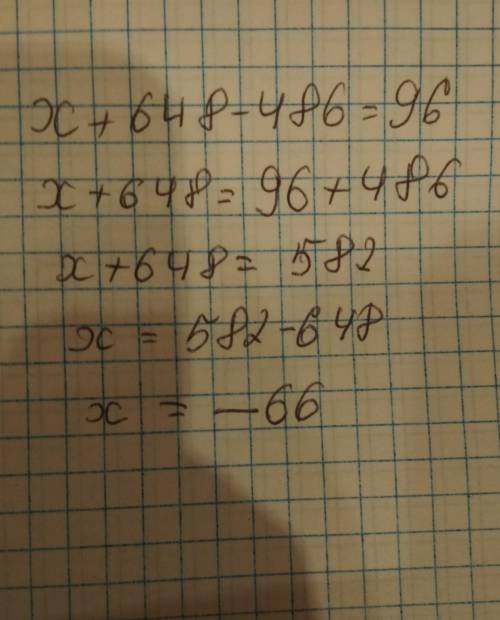 x + 648 - 486 = 96
x + 648 = 96 + 486
x + 648 = 582
x = 582 - 648
x = -66